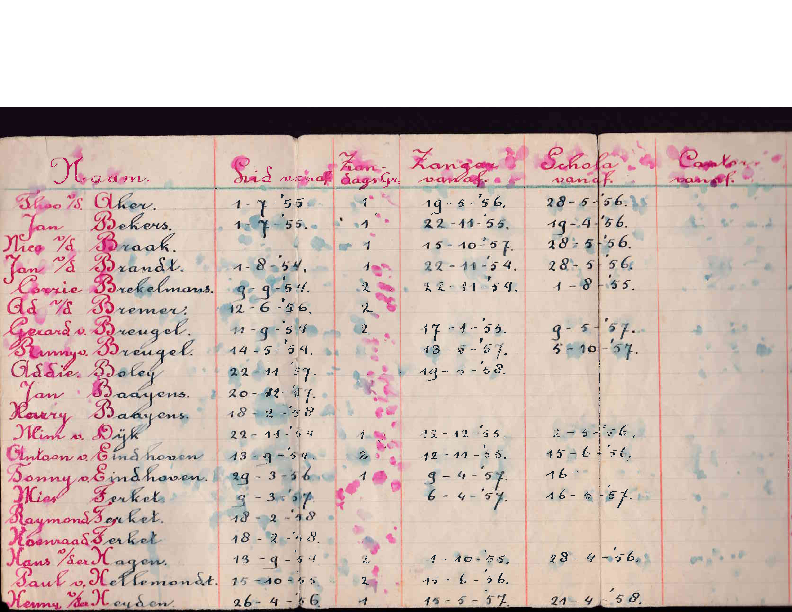 Naam. Lid vanaf. Zan- Zanger Schola Cantor
dagstr. vanaf. vanaf. vanaf.
Theo v/d. Aker. 1-7-'55 1 19-5-'56. 28-5-'56.
Jan Bekers. 1-7-'55. 1 22-11-'55. 19-4-'56.
Nico v/d Braak. 1 15-10-'57. 28-5-'56.
Jan v/d Brandt. 1-8-'54. 1 22-11-'54. 28-5-'56.
Corrie Brekelmans. 9-9-'54. 2 22-11-'54. 1-8-'55.
Ad v/d Bremer. 12-6-'56. 2
Gerard v. Breugel. 11-9-'54 2 17-1-'55. 9-5-'57.
Benny v. Breugel. 14-5-'54. 13-5-'57. 5-10-'57.
Addie. Boley 22-11-'57. 19-5-'58.
Jan Baayens. 20-12-'57.
Harry Baayens. 18-2-'58
Wim v. Dijk 22-11-'54 1 12-'55 2-5-'56.
Antoon v. Eindhoven 13-9-'54. 2 12-11-'55. 15-6-'56.
Tonny v. Eindhoven. 29-3-'56 1 9-4-'57. 16
Mies Ferket 9-3-'57 6-4-'57. 16-4-'57.
Raymond Ferket. 18-2-'58
Koenraad Ferket 18-2-'58
Hans v/der Hagen. 13-9-'54 2 1-10-'55. 28-4-'56.
Paul v. Hellemondt. 15-10-'55 2 6-'56.
Henny v/der Heyden. 26-4-'56 1 15-5-'57. 21-4-'58.